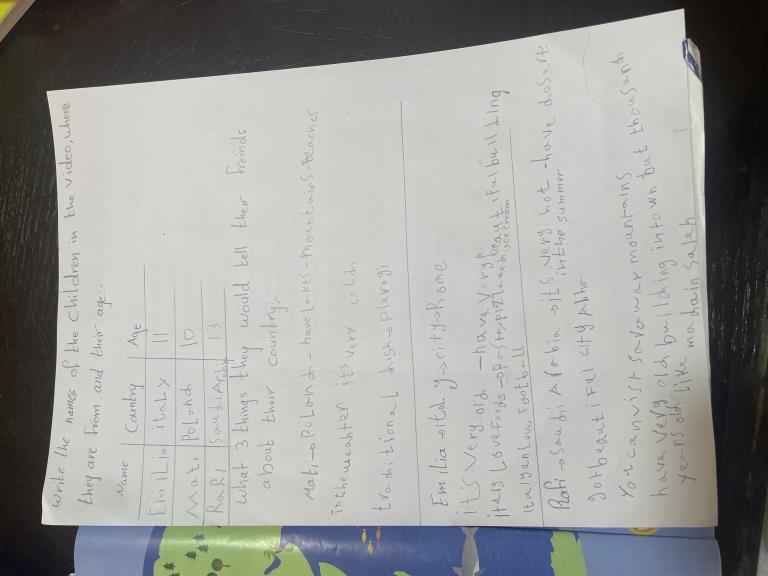 write the names of the children in the video, where
they are from and their age:-
Name Country Age
Emilia italy 11
Mati Poland 10
Rafi Saudi Arbi 13
what 3 things they would tell their freinds
about their country:-
Mati → poland - have lakes - mountains - beaches
in the it's very cold
traditional dish → pierogi
Emilia → itly → city → Rome
it's very old - have very beautiful building
itay Love foods → pasta, pizza and ice cream
italyan love football
Rafi → Saudi Arabia → its very hot - have desert
in the summer
got beautiful city Abha
You can visit sarawar mountains
have very old building in town but thousand
years old like madain saleh